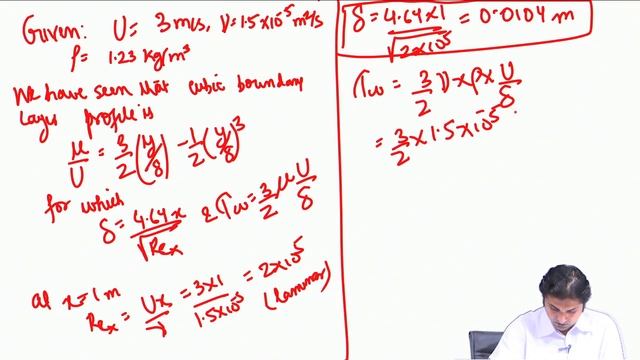 Given: U = 3 m/s, ν = 1.5×10⁻⁵ m²/s
ρ = 1.23 kg/m³
We have seen that cubic boundary
layer profile is
u/U = 3/2 (y/δ) - 1/2 (y/δ)³
for which
δ = 4.64x/√Rex & τw = 3/2 μ U/δ
at x = 1 m
Rex = Ux/ν = 3×1/1.5×10⁻⁵ = 2×10⁵
(Laminar)
δ = 4.64×1/√2×10⁵ = 0.0104 m
τw = 3/2 ν×ρ× U/δ
= 3/2 × 1.5×10⁻⁵